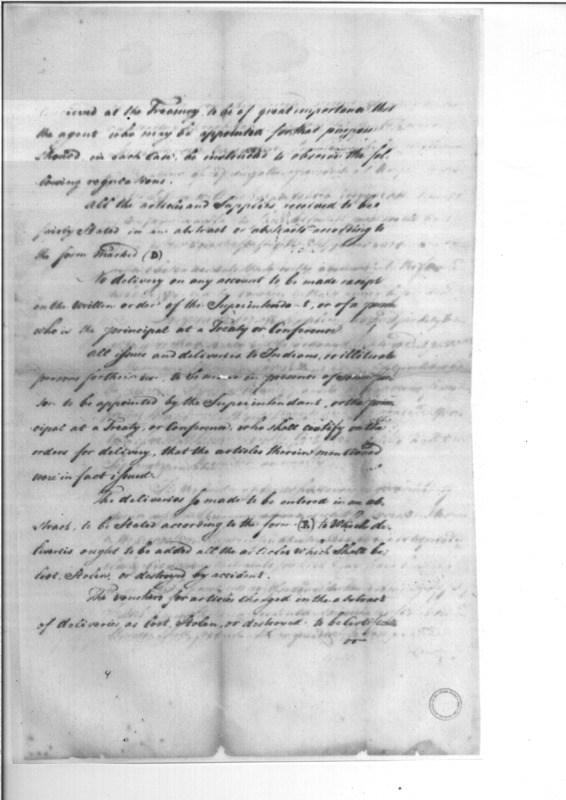 ceived at the Treasury to be of great importance that
the agent who may be appointed for that purpose
should, in each case, be instructed to observe the fol-
lowing regulations.
All the articles and Supplies received to be
fairly Stated in an abstract or abstracts according to
the form marked (D)
No delivery on any account to be made except
on the written order of the Superintendant, or of a person
who is the principal at a Treaty or Conference
All issues and deliveries to Indians, or illiterate
persons for their use, to be made in presence of some per
son to be appointed by the Superintendant, or the prin
cipal at a Treaty, or Conference, who shall certify on the
orders for delivery, that the articles therein mentioned
were in fact issued.
The deliveries so made to be entered in an ab,
stract, to be Stated according to the form (E) to which de
liveries ought to be added all the articles which shall be
lost, Stolen, or destroyed by accident.
The vouchers for articles charged in the abstract
of deliveries, as lost, Stolen, or destroyed to be certified
or
4